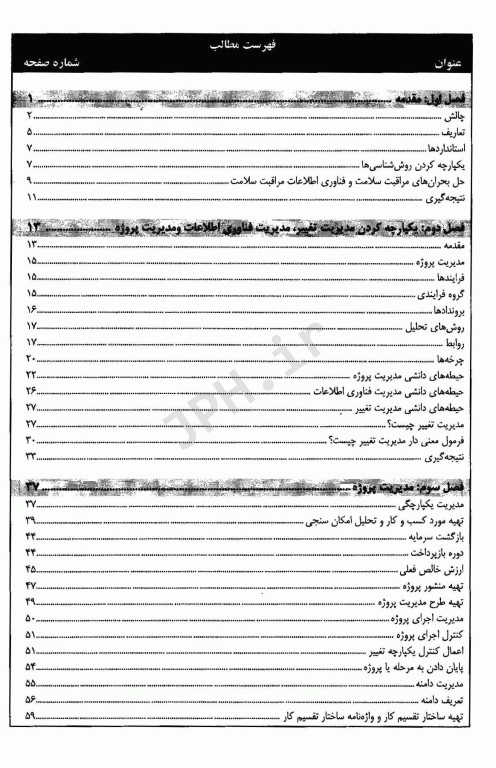 فهرست مطالب
عنوان شماره صفحه
فصل اول: مقدمه ........ ۱
چالش ........ ۲
تعاریف ........ ۵
استانداردها ........ ۷
یکپارچه کردن روش‌شناسی‌ها ........ ۷
حل بحران‌های مراقبت سلامت و فناوری اطلاعات مراقبت سلامت ........ ۹
نتیجه‌گیری ........ ۱۱
فصل دوم: یکپارچه کردن مدیریت تغییر، مدیریت فناوری اطلاعات ومدیریت پروژه ........ ۱۳
مقدمه ........ ۱۳
مدیریت پروژه ........ ۱۵
فرایندها ........ ۱۵
گروه فرایندی ........ ۱۵
بروندادها ........ ۱۶
روش‌های تحلیل ........ ۱۷
روابط ........ ۱۷
چرخه‌ها ........ ۲۰
حیطه‌های دانشی مدیریت پروژه ........ ۲۲
حیطه‌های دانشی مدیریت فناوری اطلاعات ........ ۲۶
حیطه‌های دانشی مدیریت تغییر ........ ۲۷
مدیریت تغییر چیست؟ ........ ۲۷
فرمول معنی دار مدیریت تغییر چیست؟ ........ ۳۰
نتیجه‌گیری ........ ۳۳
فصل سوم: مدیریت پروژه ........ ۳۷
مدیریت یکپارچگی ........ ۳۷
تهیه مورد کسب و کار و تحلیل امکان سنجی ........ ۳۹
بازگشت سرمایه ........ ۴۴
دوره بازپرداخت ........ ۴۴
ارزش خالص فعلی ........ ۴۵
تهیه منشور پروژه ........ ۴۷
تهیه طرح مدیریت پروژه ........ ۴۹
مدیریت اجرای پروژه ........ ۵۰
کنترل اجرای پروژه ........ ۵۱
اعمال کنترل یکپارچه تغییر ........ ۵۱
پایان دادن به مرحله یا پروژه ........ ۵۴
مدیریت دامنه ........ ۵۵
تعریف دامنه ........ ۵۶
تهیه ساختار تقسیم کار و واژه‌نامه ساختار تقسیم کار ........ ۵۹
JPH.ir